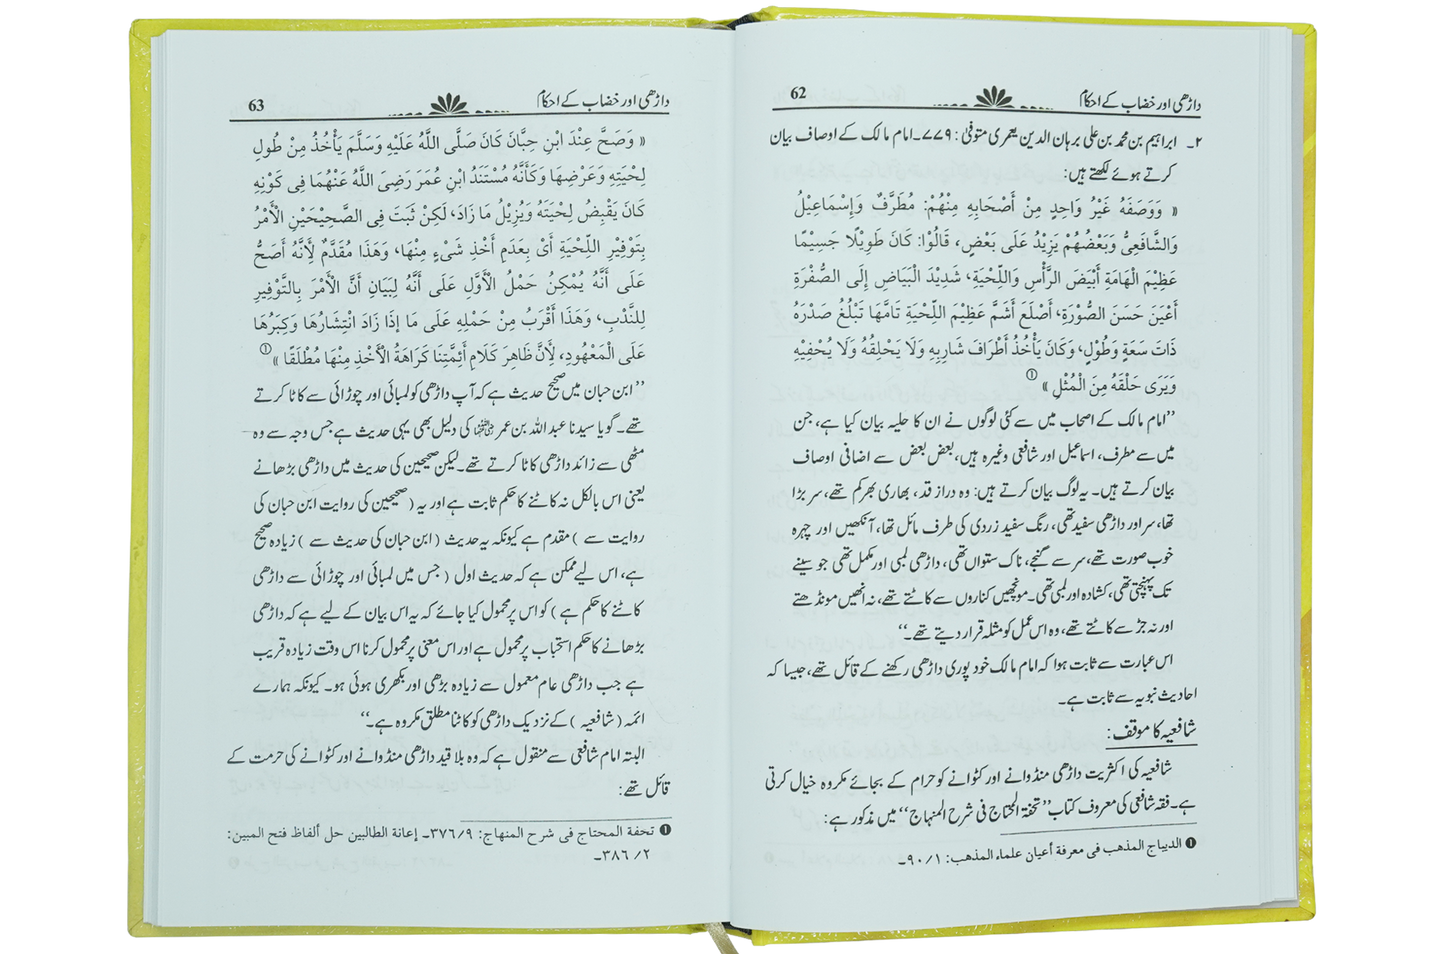 داڑھی اور خضاب کے احکام 62
۲۔ ابراہیم بن محمد بن علی برہان الدین یعمری متوفیٰ : ۷۷۹۔امام مالک کے اوصاف بیان
کرتے ہوئے لکھتے ہیں:
« وَوَصَفَهُ غَيْرُ وَاحِدٍ مِنْ أَصْحَابِهِ مِنْهُمْ: مُطَرَّفٌ وَإِسْمَاعِيْلُ
وَالشَّافَعِيُّ وَبَعْضُهُمْ يَزِيْدُ عَلَى بَعْضٍ، قَالُوْا: كَانَ طَوِيْلًا جَسِيْمًا
عَظِيْمَ الْهَامَةِ أَبْيَضَ الرَّأْسِ وَاللِّحْيَةِ، شَدِيْدَ الْبَيَاضِ إِلَى الصُّفْرَةِ
أَعْيَنَ حَسَنَ الصُّوْرَةِ، أَصْلَعَ أَشَمَّ عَظِيْمَ اللِّحْيَةِ تَامَّهَا تَبْلُغُ صَدْرَهُ
ذَاتَ سَعَةٍ وَطُوْلٍ، وَكَانَ يَأْخُذُ أَطْرَافَ شَارِبِهِ وَلَا يَحْلِقُهُ وَلَا يُحْفِيْهِ
وَيَرَى حَلْقَهُ مِنَ الْمُثْلِ » ①
’’امام مالک کے اصحاب میں سے کئی لوگوں نے ان کا حلیہ بیان کیا ہے، جن
میں سے مطرف، اسماعیل اور شافعی وغیرہ ہیں، بعض بعض سے اضافی اوصاف
بیان کرتے ہیں۔ یہ لوگ بیان کرتے ہیں: وہ دراز قد، بھاری بھرکم تھے، سر بڑا
تھا، سر اور داڑھی سفید تھی، رنگ سفید زردی کی طرف مائل تھا، آنکھیں اور چہرہ
خوب صورت تھے، سر سے گنجے، ناک ستواں تھی، داڑھی لمبی اور مکمل تھی جو سینے
تک پہنچتی تھی، کشادہ اور لمبی تھی۔ مونچھیں کناروں سے کاٹتے تھے، نہ انھیں مونڈھتے
اور نہ جڑ سے کاٹتے تھے، وہ اس عمل کو مثلہ قرار دیتے تھے۔‘‘
اس عبارت سے ثابت ہوا کہ امام مالک خود پوری داڑھی رکھنے کے قائل تھے، جیسا کہ
احادیث نبویہ سے ثابت ہے۔
شافعیہ کا موقف:
شافعیہ کی اکثریت داڑھی منڈوانے اور کٹوانے کو حرام کے بجائے مکروہ خیال کرتی
ہے۔ فقہ شافعی کی معروف کتاب ’’تحفۃ المحتاج فی شرح المنہاج‘‘ میں مذکور ہے:
❶ الديباج المذهب فى معرفة أعيان علماء المذهب: ۹۰/۱۔
داڑھی اور خضاب کے احکام 63
« وَصَحَّ عِنْدَ ابْنِ حِبَّانَ كَانَ صَلَّى اللَّهُ عَلَيْهِ وَسَلَّمَ يَأْخُذُ مِنْ طُولِ
لِحْيَتِهِ وَعَرْضِهَا وَكَأَنَّهُ مُسْتَنَدُ ابْنِ عُمَرَ رَضِىَ اللَّهُ عَنْهُمَا فِى كَوْنِهِ
كَانَ يَقْبِضُ لِحْيَتَهُ وَيُزِيْلُ مَا زَادَ، لَكِنْ ثَبَتَ فِى الصَّحِيْحَيْنِ الْأَمْرُ
بِتَوْفِيْرِ اللِّحْيَةِ أَىْ بِعَدَمِ أَخْذِ شَىْءٍ مِنْهَا، وَهَذَا مُقَدَّمٌ لِأَنَّهُ أَصَحُّ
عَلَى أَنَّهُ يُمْكِنُ حَمْلُ الْأَوَّلِ عَلَى أَنَّهُ لِبَيَانِ أَنَّ الْأَمْرَ بِالتَّوْفِيْرِ
لِلنَّدْبِ، وَهَذَا أَقْرَبُ مِنْ حَمْلِهِ عَلَى مَا إِذَا زَادَ انْتِشَارُهَا وَكِبَرُهَا
عَلَى الْمَعْهُودِ، لِأَنَّ ظَاهِرَ كَلَامِ أَئِمَّتِنَا كَرَاهَةُ الْأَخْذِ مِنْهَا مُطْلَقًا » ①
’’ابن حبان میں صحیح حدیث ہے کہ آپ داڑھی کو لمبائی اور چوڑائی سے کاٹا کرتے
تھے۔ گویا سیدنا عبد اللہ بن عمر رضی اللہ عنہما کی دلیل بھی یہی حدیث ہے جس وجہ سے وہ
مٹھی سے زائد داڑھی کاٹا کرتے تھے۔ لیکن صحیحین کی حدیث میں داڑھی بڑھانے
یعنی اس بالکل نہ کاٹنے کا حکم ثابت ہے اور یہ ( صحیحین کی روایت ابن حبان کی
روایت سے ) مقدم ہے کیونکہ یہ حدیث ( ابن حبان کی حدیث سے ) زیادہ صحیح
ہے، اس لیے ممکن ہے کہ حدیث اول ( جس میں لمبائی اور چوڑائی سے داڑھی
کاٹنے کا حکم ہے ) کو اس پر محمول کیا جائے کہ یہ اس بیان کے لیے ہے کہ داڑھی
بڑھانے کا حکم استحباب پر محمول ہے اور اس معنی پر محمول کرنا اس وقت زیادہ قریب
ہے جب داڑھی عام معمول سے زیادہ بڑھی اور بکھری ہوئی ہو۔ کیونکہ ہمارے
ائمہ ( شافعیہ ) کے نزدیک داڑھی کو کاٹنا مطلق مکروہ ہے۔‘‘
البتہ امام شافعی سے منقول ہے کہ وہ بلا قید داڑھی منڈوانے اور کٹوانے کی حرمت کے
قائل تھے:
❶ تحفة المحتاج فى شرح المنهاج: ۳۷٦/۹۔ إعانة الطالبين حل ألفاظ فتح المبين:
۲/ ۳۸٦۔